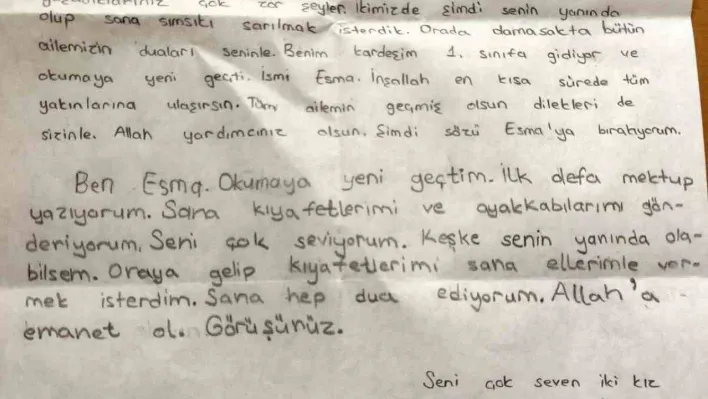 çok zor şeyler. İkimizde şimdi senin yanında
olup sana sımsıkı sarılmak isterdik. Orada olamasakta bütün
ailemizin duaları seninle. Benim kardeşim 1. sınıfa gidiyor ve
okumaya yeni geçti. İsmi Esma. İnşallah en kısa sürede tüm
yakınlarına ulaşırsın. Tüm ailemin geçmiş olsun dilekleri de
sizinle. Allah yardımcınız olsun. Şimdi sözü Esma'ya bırakıyorum.
Ben Esma. Okumaya yeni geçtim. İlk defa mektup
yazıyorum. Sana kıyafetlerimi ve ayakkabılarımı gön-
deriyorum. Seni çok seviyorum. Keşke senin yanında ola-
bilsem. Oraya gelip kıyafetlerimi sana ellerimle ver-
mek isterdim. Sana hep dua ediyorum. Allah'a
emanet ol. Görüşünüz.
Seni çok seven iki kız